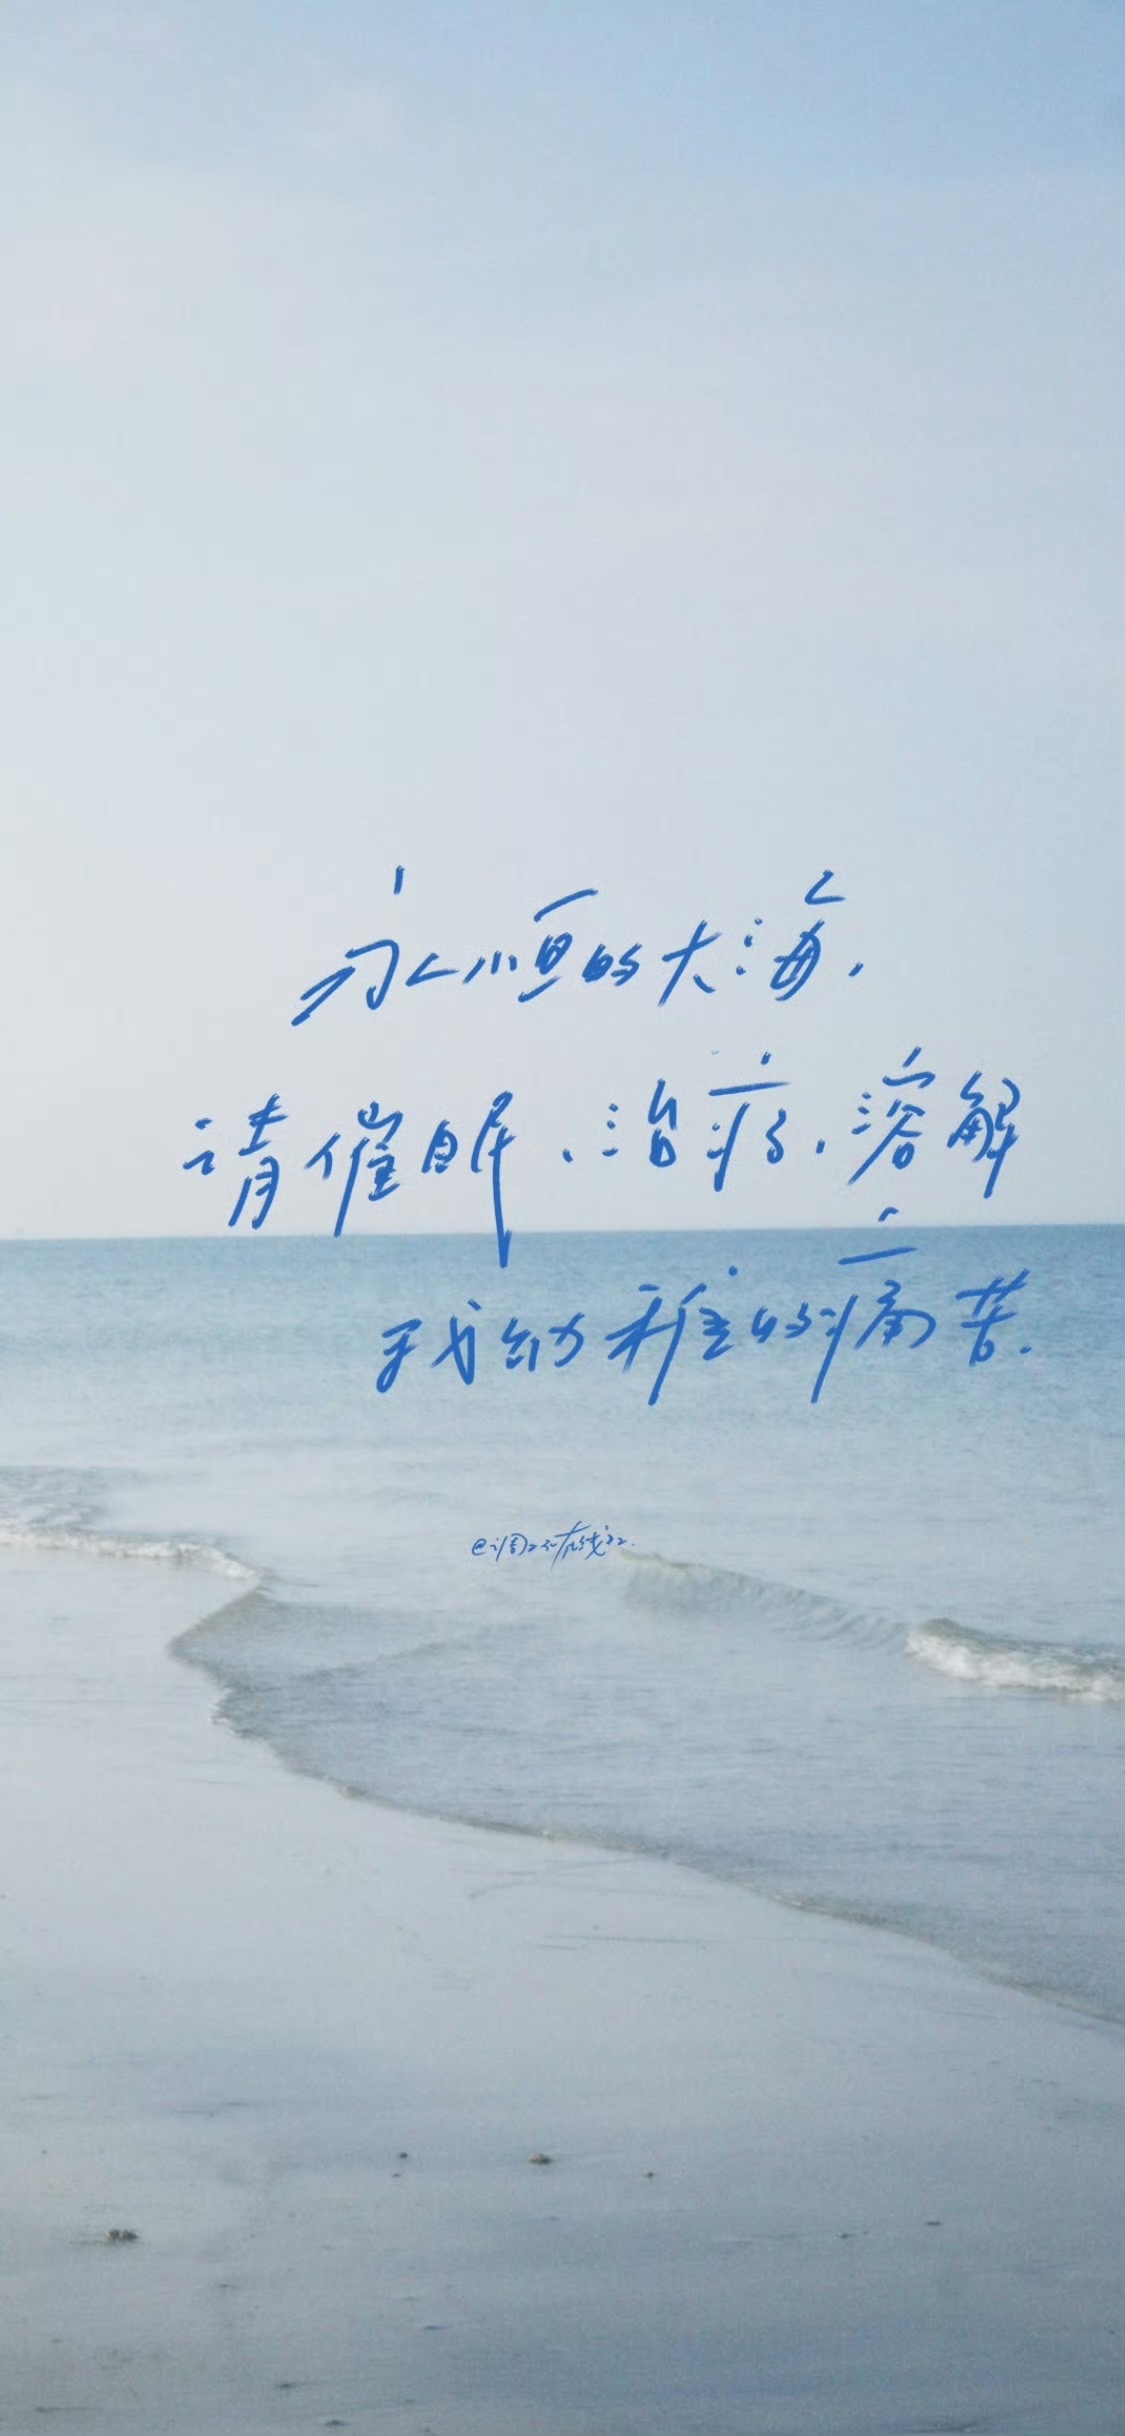 永恒的大海,
请催眠、治疗,溶解
我幼稚的痛苦.